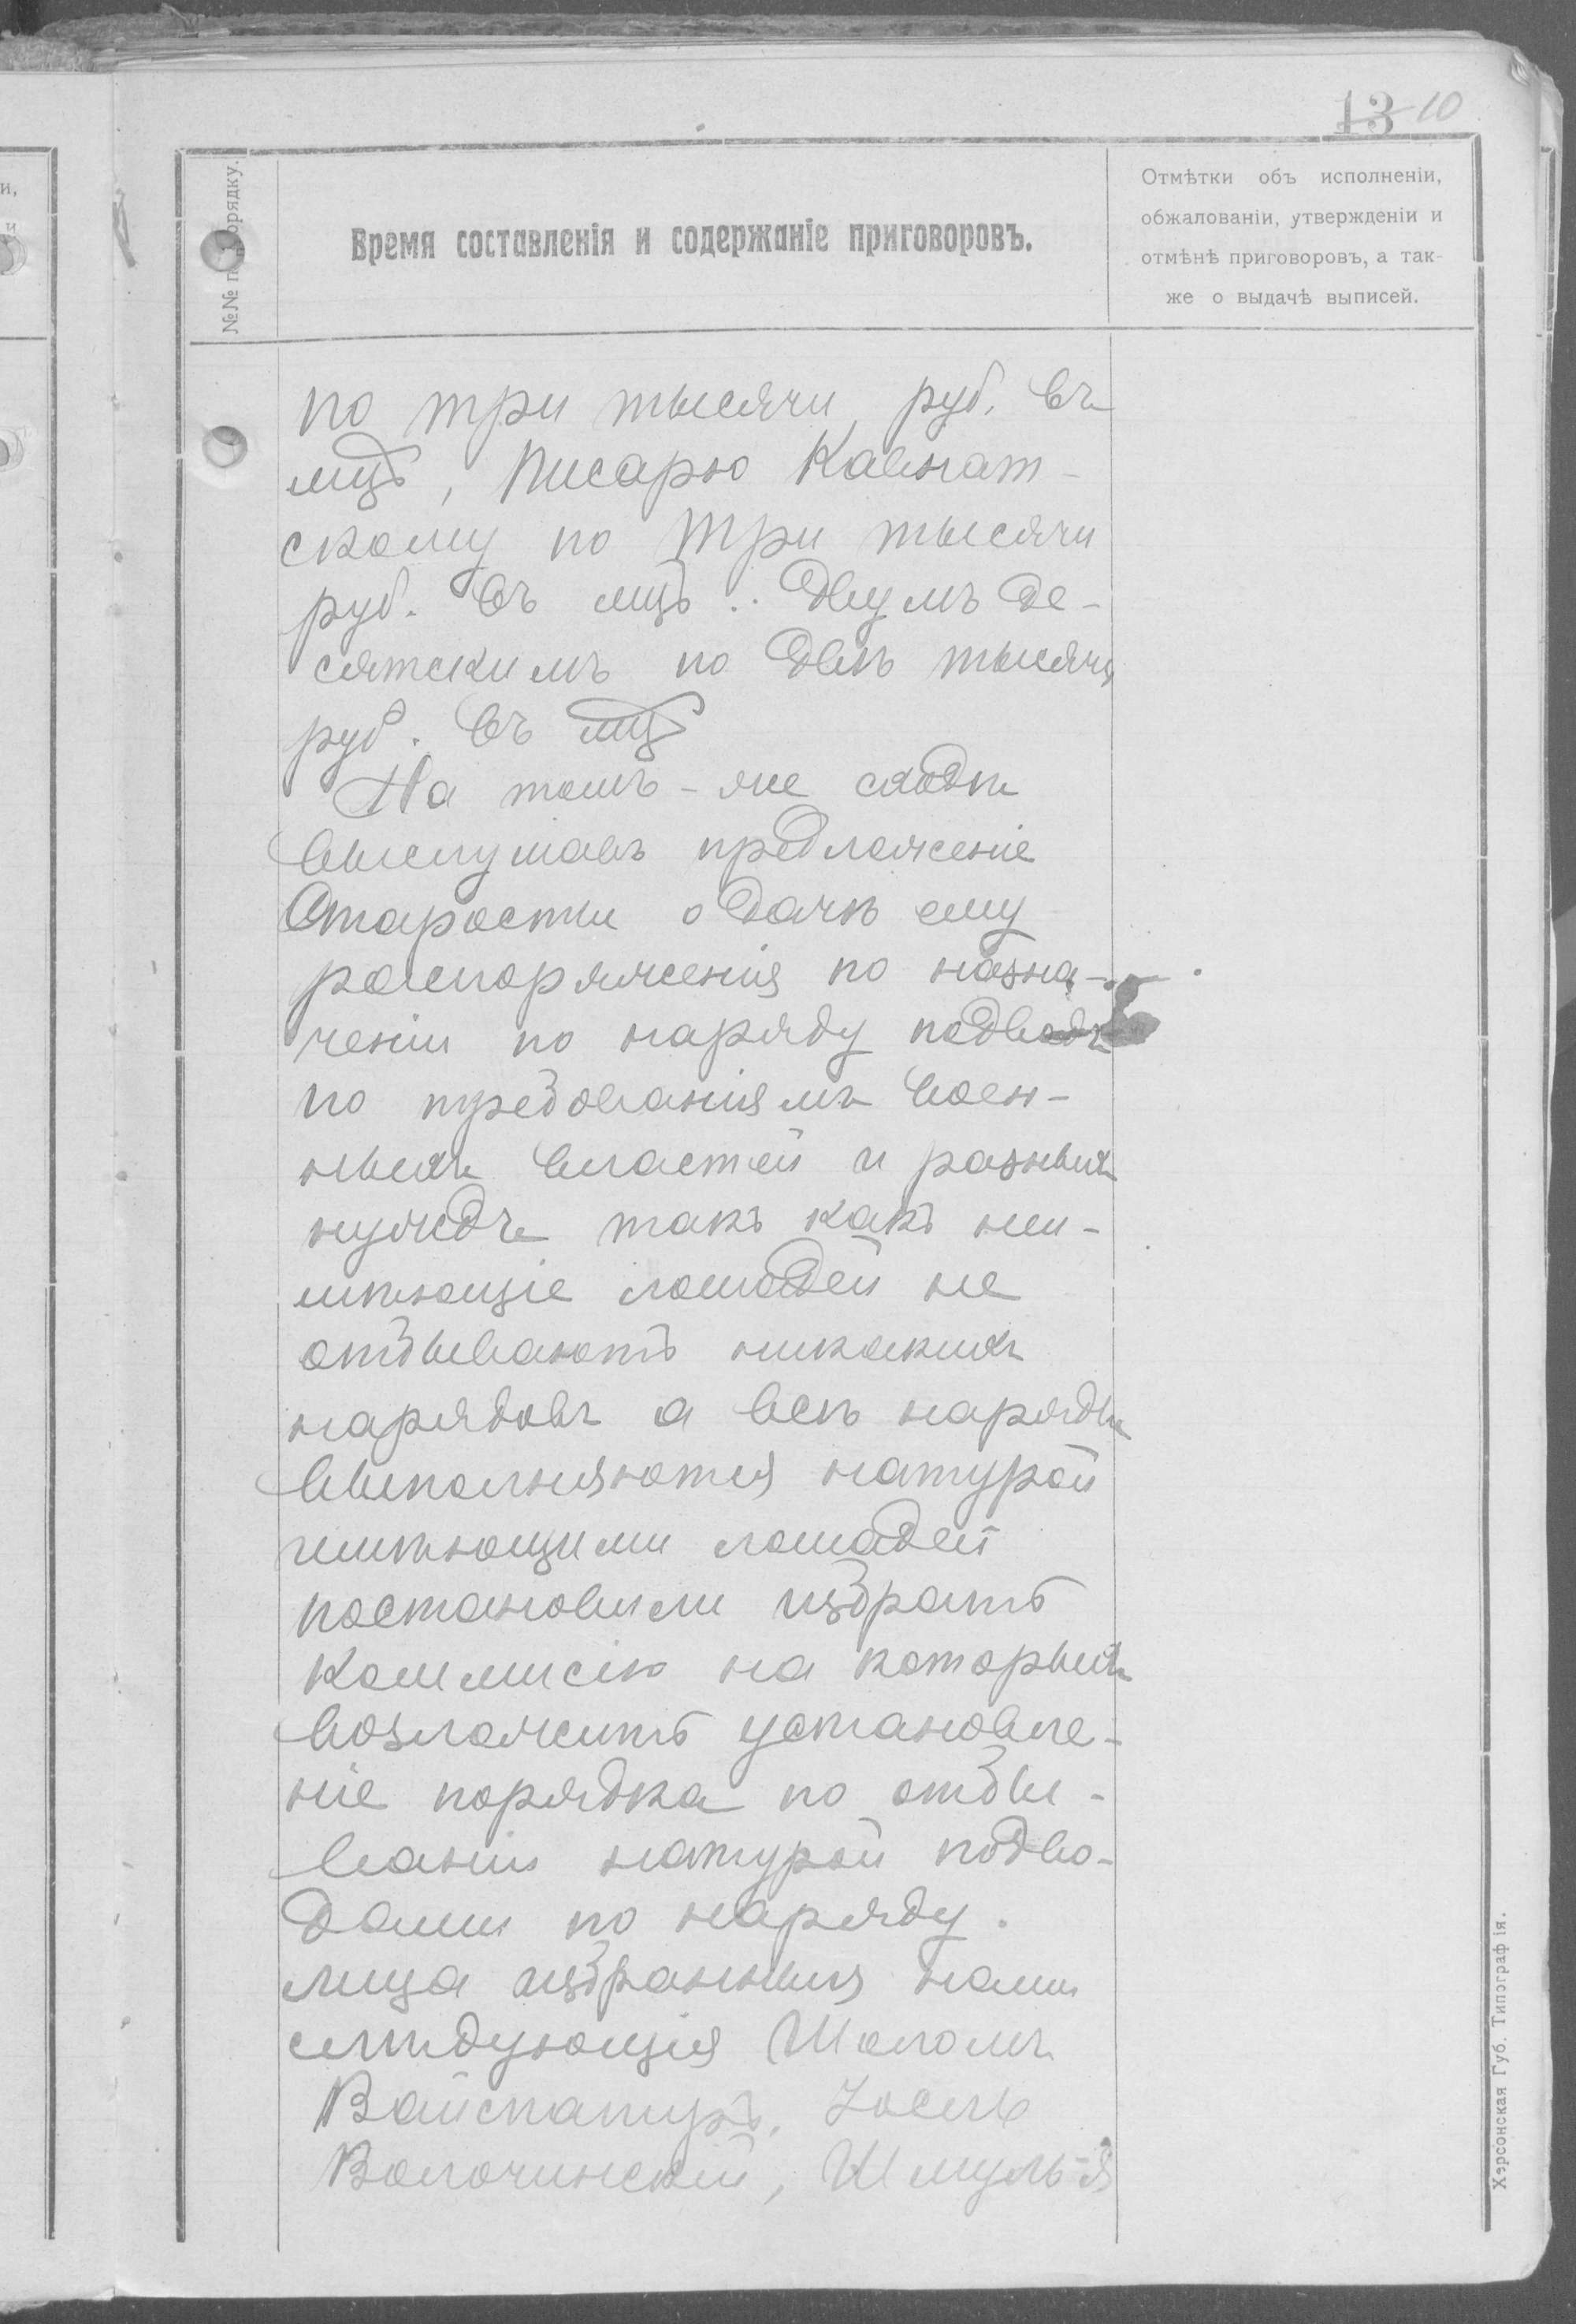 13 10
№№ по порядку.
Время составленія и содержаніе приговоровъ.
Отмѣтки объ исполненіи,
обжалованіи, утвержденіи и
отмѣнѣ приговоровъ, а так-
же о выдачѣ выписей.
по три тысячи руб. въ
мцъ, Писарю Кавнат-
скому по три тысячи
руб. въ мцъ.. Двумъ де-
сятскимъ по двѣ тысячи
руб. въ мцъ
На томъ-же сходѣ
выслушавъ предложеніе
Старосты о дачѣ ему
распоряженія по назна-
ченіи по наряду подводъ
по требованіямъ воен-
ныхъ властей и разныхъ
нуждъ такъ какъ неи-
мѣющіе лошадей не
отбываютъ никакихъ
нарядовъ а всѣ наряды
выполняются натурой
имѣющими лошадей
постановили избрать
коммисію на которыхъ
возложить установле-
ніе порядка по отбы-
ваніи натурой подво-
дами по наряду.
лица избранныя нами
слѣдующія Шоломъ
Вайспапиръ, Іосель
Волочинскій, Шмуль-я
Херсонская Губ. Типографія.